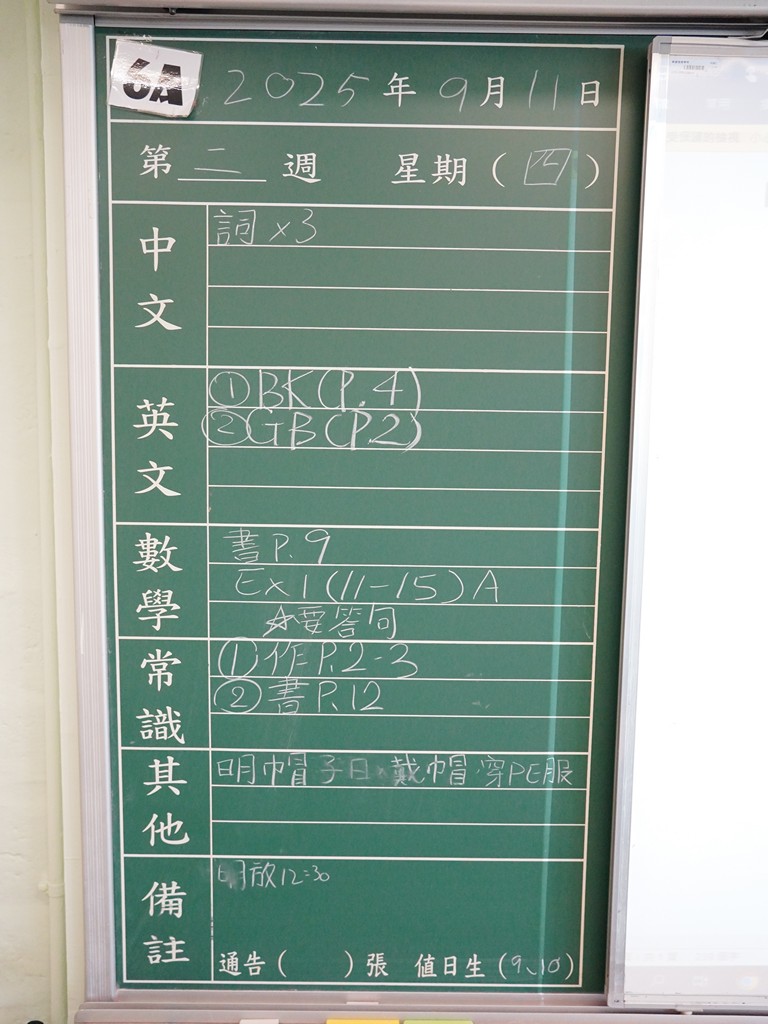 6A
2025年9月11日
第二週 星期(四)
中文
詞×3
英文
①BK(P.4)
②GB(P.2)
數學
書P.9
Ex1(11-15)A
☆要答句
常識
①作P.2-3
②書P.12
其他
明帽子日、戴帽、穿PE服
備註
明放12:30
通告( )張 值日生(9、10)